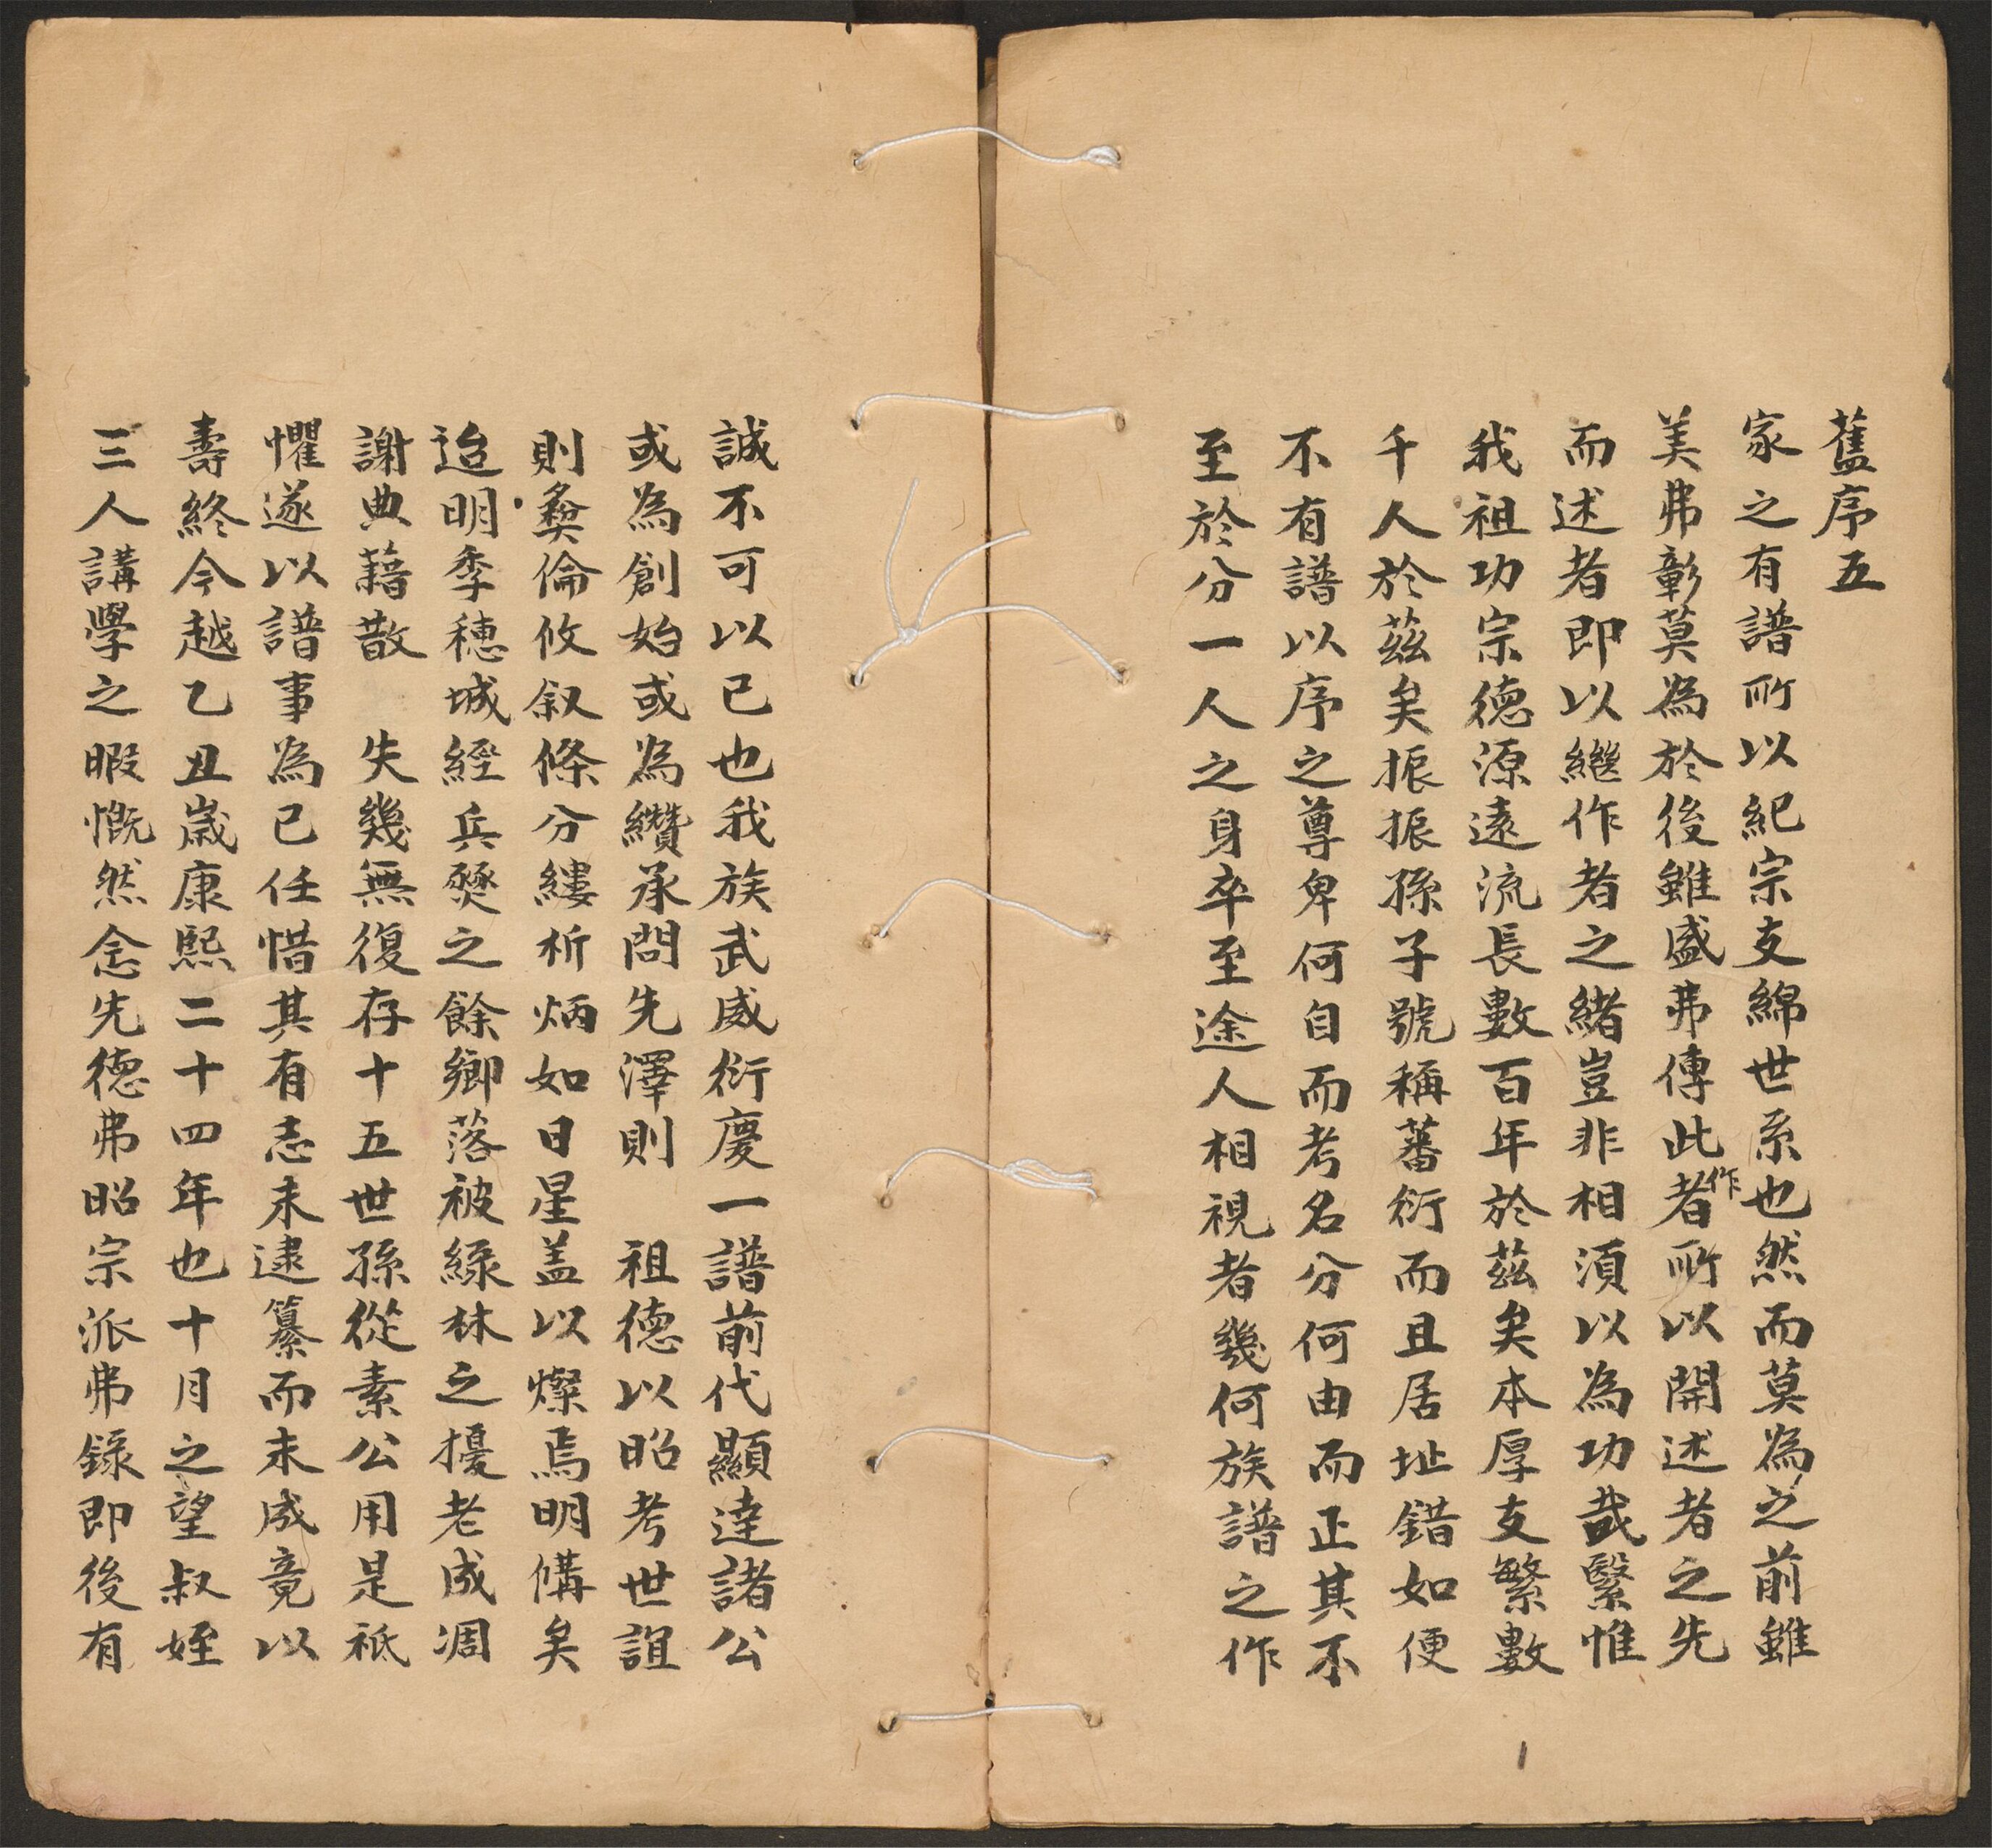 舊序五
家之有譜所以紀宗支綿世系也然而莫為之前雖
美弗彰莫為於後雖盛弗傳此作者所以開述者之先
而述者即以繼作者之緒豈非相須以為功哉繄惟
我祖功宗德源遠流長數百年於茲矣本厚支繁數
千人於茲矣振振孫子號稱蕃衍而且居址錯如便
不有譜以序之尊卑何自而考名分何由而正其不
至於分一人之身卒至途人相視者幾何族譜之作
誠不可以已也我族武威衍慶一譜前代顯達諸公
或為創始或為纘承問先澤則　祖德以昭考世誼
則彝倫攸叙條分縷析炳如日星盖以燦焉明備矣
迨明季穗城經兵燹之餘鄉落被綠林之擾老成凋
謝典藉散　失幾無復存十五世孫從素公用是祗
懼遂以譜事為已任惜其有志未逮纂而未成竟以
壽終今越乙丑歲康熙二十四年也十月之望叔姪
三人講學之暇慨然念先德弗昭宗派弗錄即後有